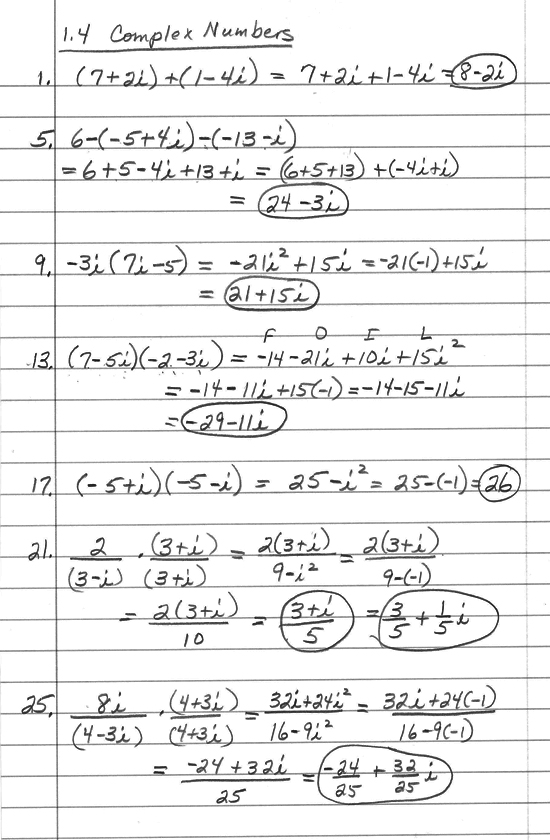 1.4 Complex Numbers
1. (7+2i)+(1-4i) = 7+2i+1-4i = 8-2i
5. 6-(-5+4i)-(-13-i)
= 6+5-4i+13+i = (6+5+13)+(-4i+i)
= 24-3i
9. -3i(7i-5) = -21i²+15i = -21(-1)+15i
= 21+15i
F O I L
13. (7-5i)(-2-3i) = -14-21i+10i+15i²
= -14-11i+15(-1) = -14-15-11i
= -29-11i
17. (-5+i)(-5-i) = 25-i² = 25-(-1) = 26
21. 2/(3-i) · (3+i)/(3+i) = 2(3+i)/9-i² = 2(3+i)/9-(-1)
= 2(3+i)/10 = 3+i/5 = 3/5 + 1/5 i
25. 8i/(4-3i) · (4+3i)/(4+3i) = 32i+24i²/16-9i² = 32i+24(-1)/16-9(-1)
= -24+32i/25 = -24/25 + 32/25 i